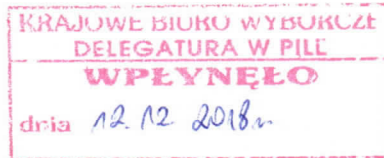 KRAJOWE BIURO WYBORCZE
DELEGATURA W PILE
WPŁYNĘŁO
dnia 12.12.2018r.